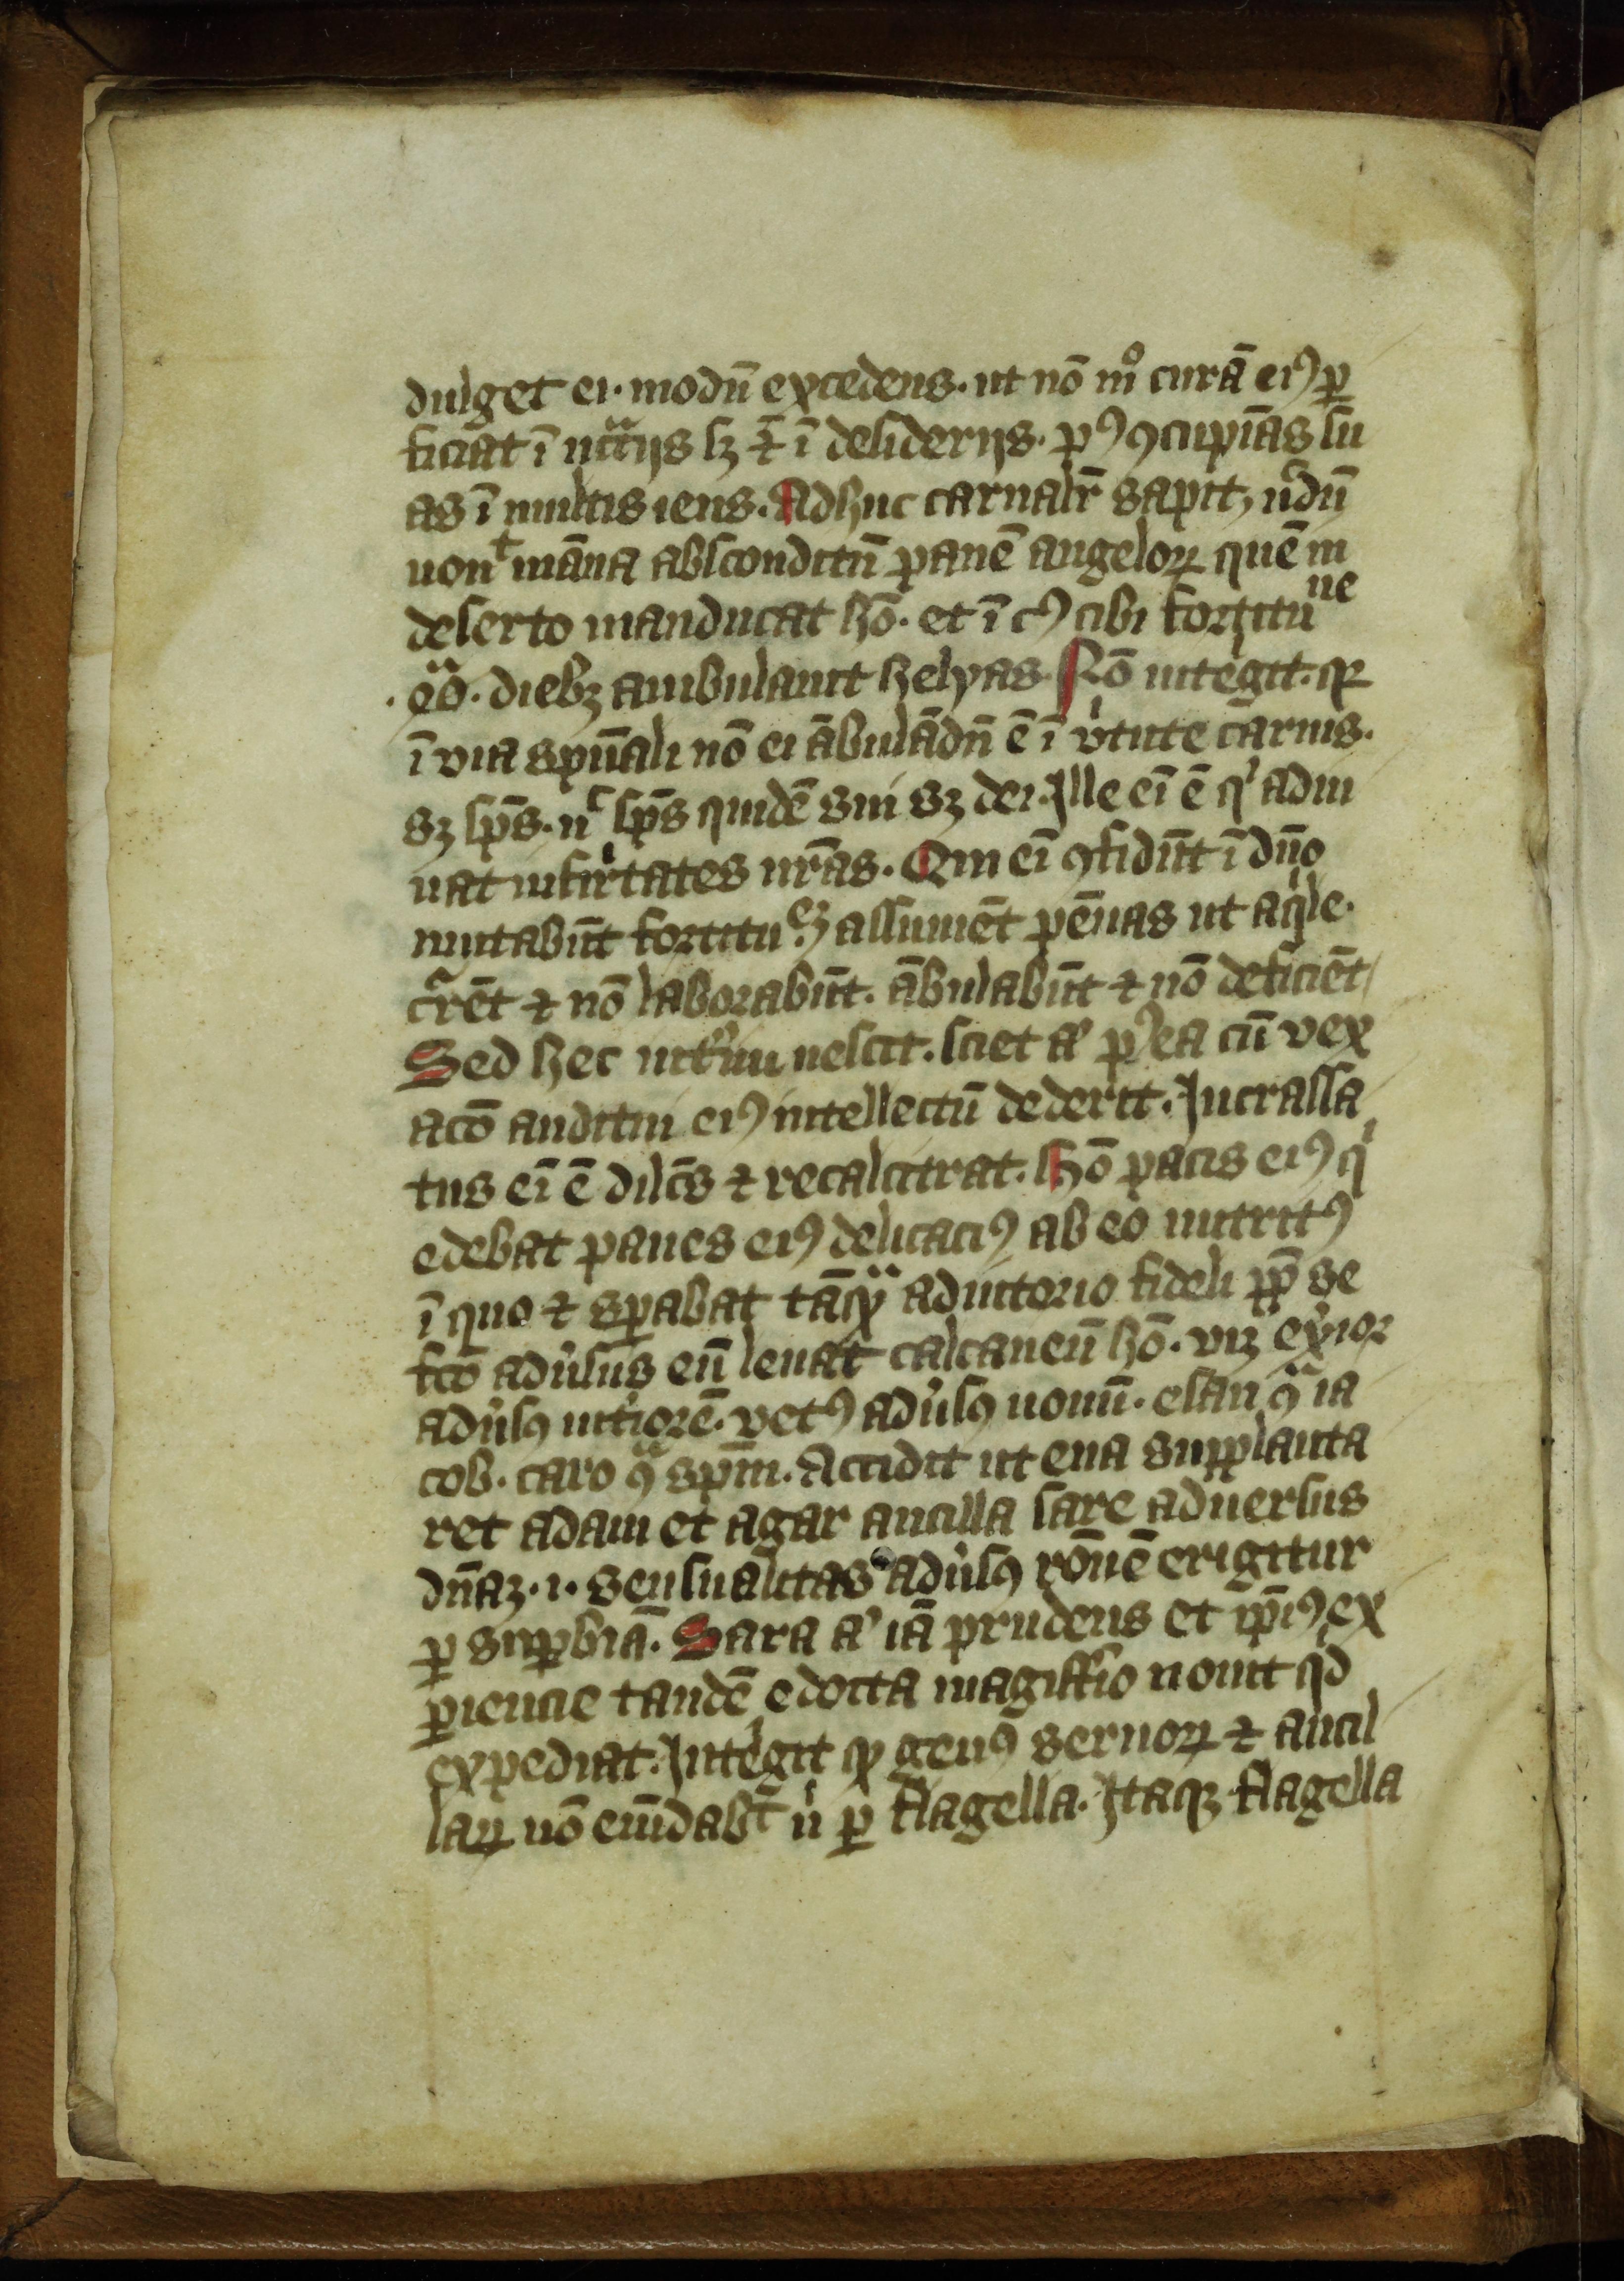 dulget ei. modū excedens. ut nō mͦ curā eiꝰ ꝑ
ficiat ī nc̄cͣijs sꝫ ⁊ ī desiderijs. pꝰ ꝯcupīas su
as ī multis iens. Adhuc carnalr̄ sapit, nͦdū
nouͭ māna absconditū panē angeloꝝ quē in
deserto manducat hō. et ī cꝰ cibi fortituⁿᵉ
.xͣlͣ. diebꝫ ambulauit helyas. Nō intˡegit. ꝙ
ī via spūali nō ei ābulādū ē ī vͥtute carnis.
sꝫ sp̄s. nͨ sp̄s quidē sui sꝫ dei. Ille eī ē qͥ adiu
uat infirͥtates nr̄as. Qui eī ꝯfidūt ī dn̄o
mutabūt fortituᵉꝫ assumēt pēnas ut aqͥle.
cr̄rēt ⁊ nō laborabūt. ābulabūt ⁊ nō deficiēt
Sed hec intͥim nescit. sciet aͥ pꝰea cū vex
acō auditui eiꝰ intellectū dederit. Incrassa
tus eī ē dilc̄s ⁊ recalcitrat. Hō pacis eiꝰ qͥ
edebat panes eiꝰ delicaciꝰ ab eo nutritꝰ
ī quo ⁊ sꝑabat tāqͣ adiutorio fideli ꝓp̄ se
fc̄o aduͥsus eū leuat calcaneū hō. vꝫ exͥior
aduͥsꝰ intͥiorē. vetꝰ aduͥsꝰ nouū. esau ꝯͣ ia
cob. caro ꝯͣ sp̄m. Accidit ut eua supplanta
ret adam et agar ancilla sare aduersus
dn̄aꝫ .i. sensualitas aduͥsꝰ rōnē erigitur
ꝑ suꝑbiā. Sara aͥ iā prudens et ip̄iꝰ ex
ꝑiencie tandē edocta magistͥio nouit qͥd
expediat. Intˡegit ꝙ genꝰ seruoꝝ ⁊ ancil
laꝝ nō emēdabͭ nͥ ꝑ flagella. Itaqꝫ flagella